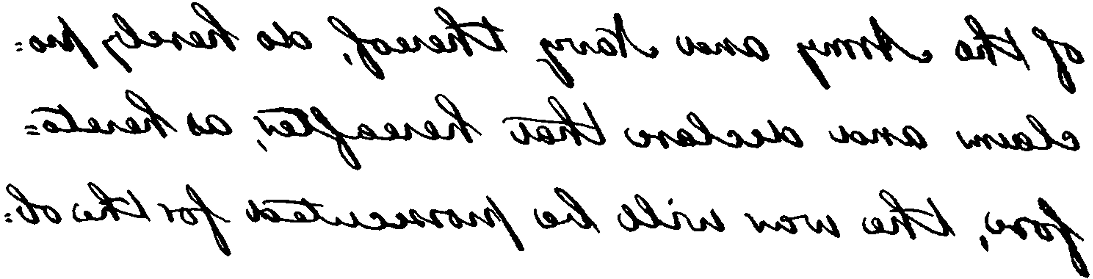 of the Army and Navy thereof, do hereby pro=
claim and declare that hereafter, as hereto=
fore, the war will be prosecuted for the ob=